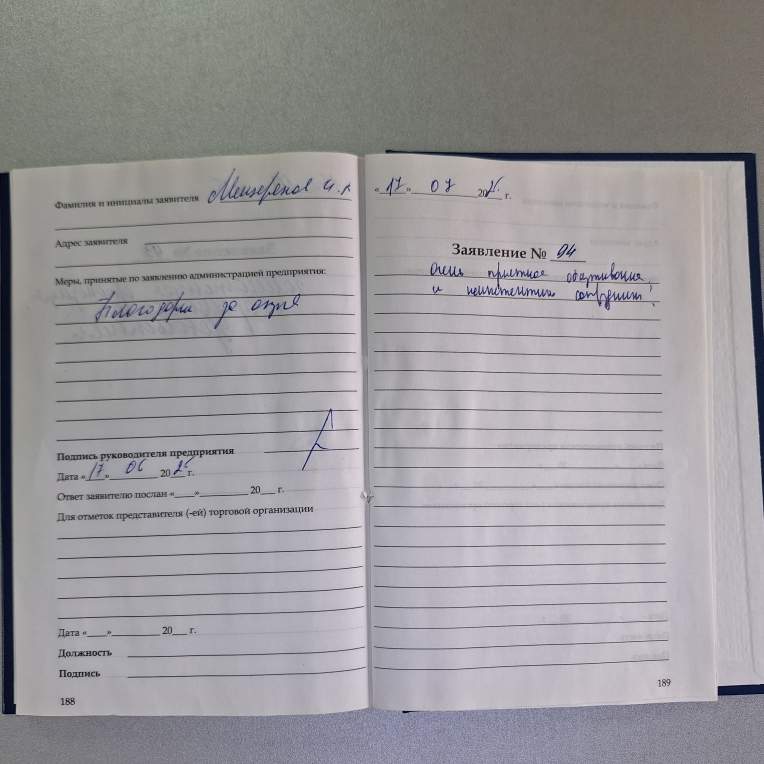 Фамилия и инициалы заявителя Мещеряков И.Г.
Адрес заявителя
Меры, принятые по заявлению администрацией предприятия:
Благодарим за отзыв
Подпись руководителя предприятия
Дата «17» 06 2025 г.
Ответ заявителю послан «___»________ 20__ г.
Для отметок представителя (-ей) торговой организации
Дата «___»________ 20__ г.
Должность
Подпись
188
«17» 07 202 г.
Заявление № 94
Очень приятное обслуживание
и сотрудники!
189